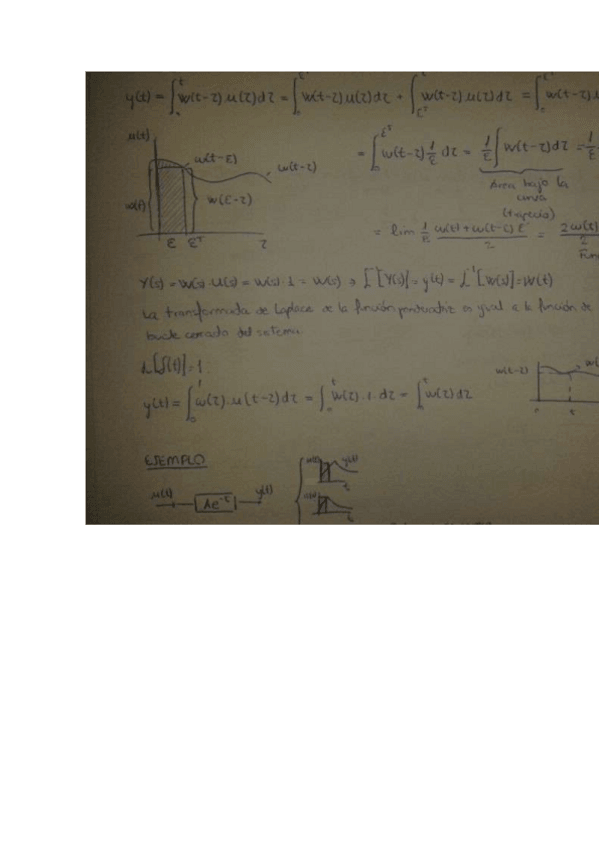 y(t) = ∫₀ᵗ w(t-τ).u(τ)dτ = ∫₀^ε⁺ w(t-τ)u(τ)dτ + ∫_ε⁺ w(t-τ).u(τ)dτ = ∫₀^ε⁺ w(t-τ)
u(t)
w(t-ε)
w(t-τ)
w(t)
w(ε-τ)
ε ε⁺ τ
= ∫₀^ε⁺ w(t-τ) 1/ε dτ = 1/ε ∫ w(t-τ)dτ = 1/ε
Área bajo la
curva
(trapecio)
= lim 1/ε w(t)+w(t-ε) ε / 2 = 2w(t) / 2
Y(s) = W(s).U(s) = W(s).1 = W(s) ⇒ L⁻¹[Y(s)] = y(t) = L⁻¹[W(s)] = W(t)
La transformada de Laplace de la función ponderatriz es igual a la función de
bucle cerrado del sistema.
L[δ(t)] = 1
y(t) = ∫₀ᵗ w(τ).u(t-τ)dτ = ∫₀ᵗ w(τ).1.dτ = ∫₀ᵗ w(τ)dτ
w(t-τ)
t
EJEMPLO
u(t)
Ae⁻ᵗ
y(t)
u(t)
y(t)